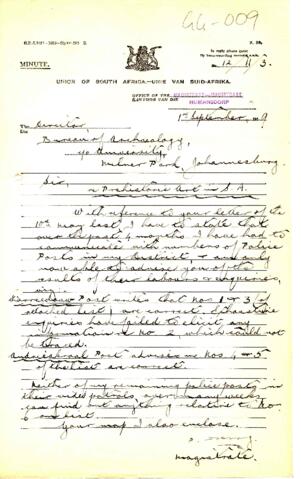 GG-009
MINUTE.
UNION OF SOUTH AFRICA.—UNIE VAN SUID-AFRIKA.
12/11/3
OFFICE OF THE
KANTOOR VAN DIE
HUMANSDORP
1st September, 9
The Director,
Bureau of Archaeology,
c/o University,
Milner Park, Johannesburg
Sir,
Prehistoric Art in S.A.
With reference to your letter of the
10th May last, I have to state that
over the past 4 months I have had to
communicate with members of Police
Posts in my District, & am only
now able to advise you of the
results of their labours & enquiries,
Post writes that Nos 1 & 3 of
attached list are correct. Exhaustive
enquiries have failed to elicit any
information re No 2 which could not
be traced.
Post advises me Nos 4 & 5
of the list are correct.
Neither of my remaining police posts in
their wide patrols, over many weeks
can find out anything relative to No.
6 on list.
Your map I also enclose.
Magistrate.